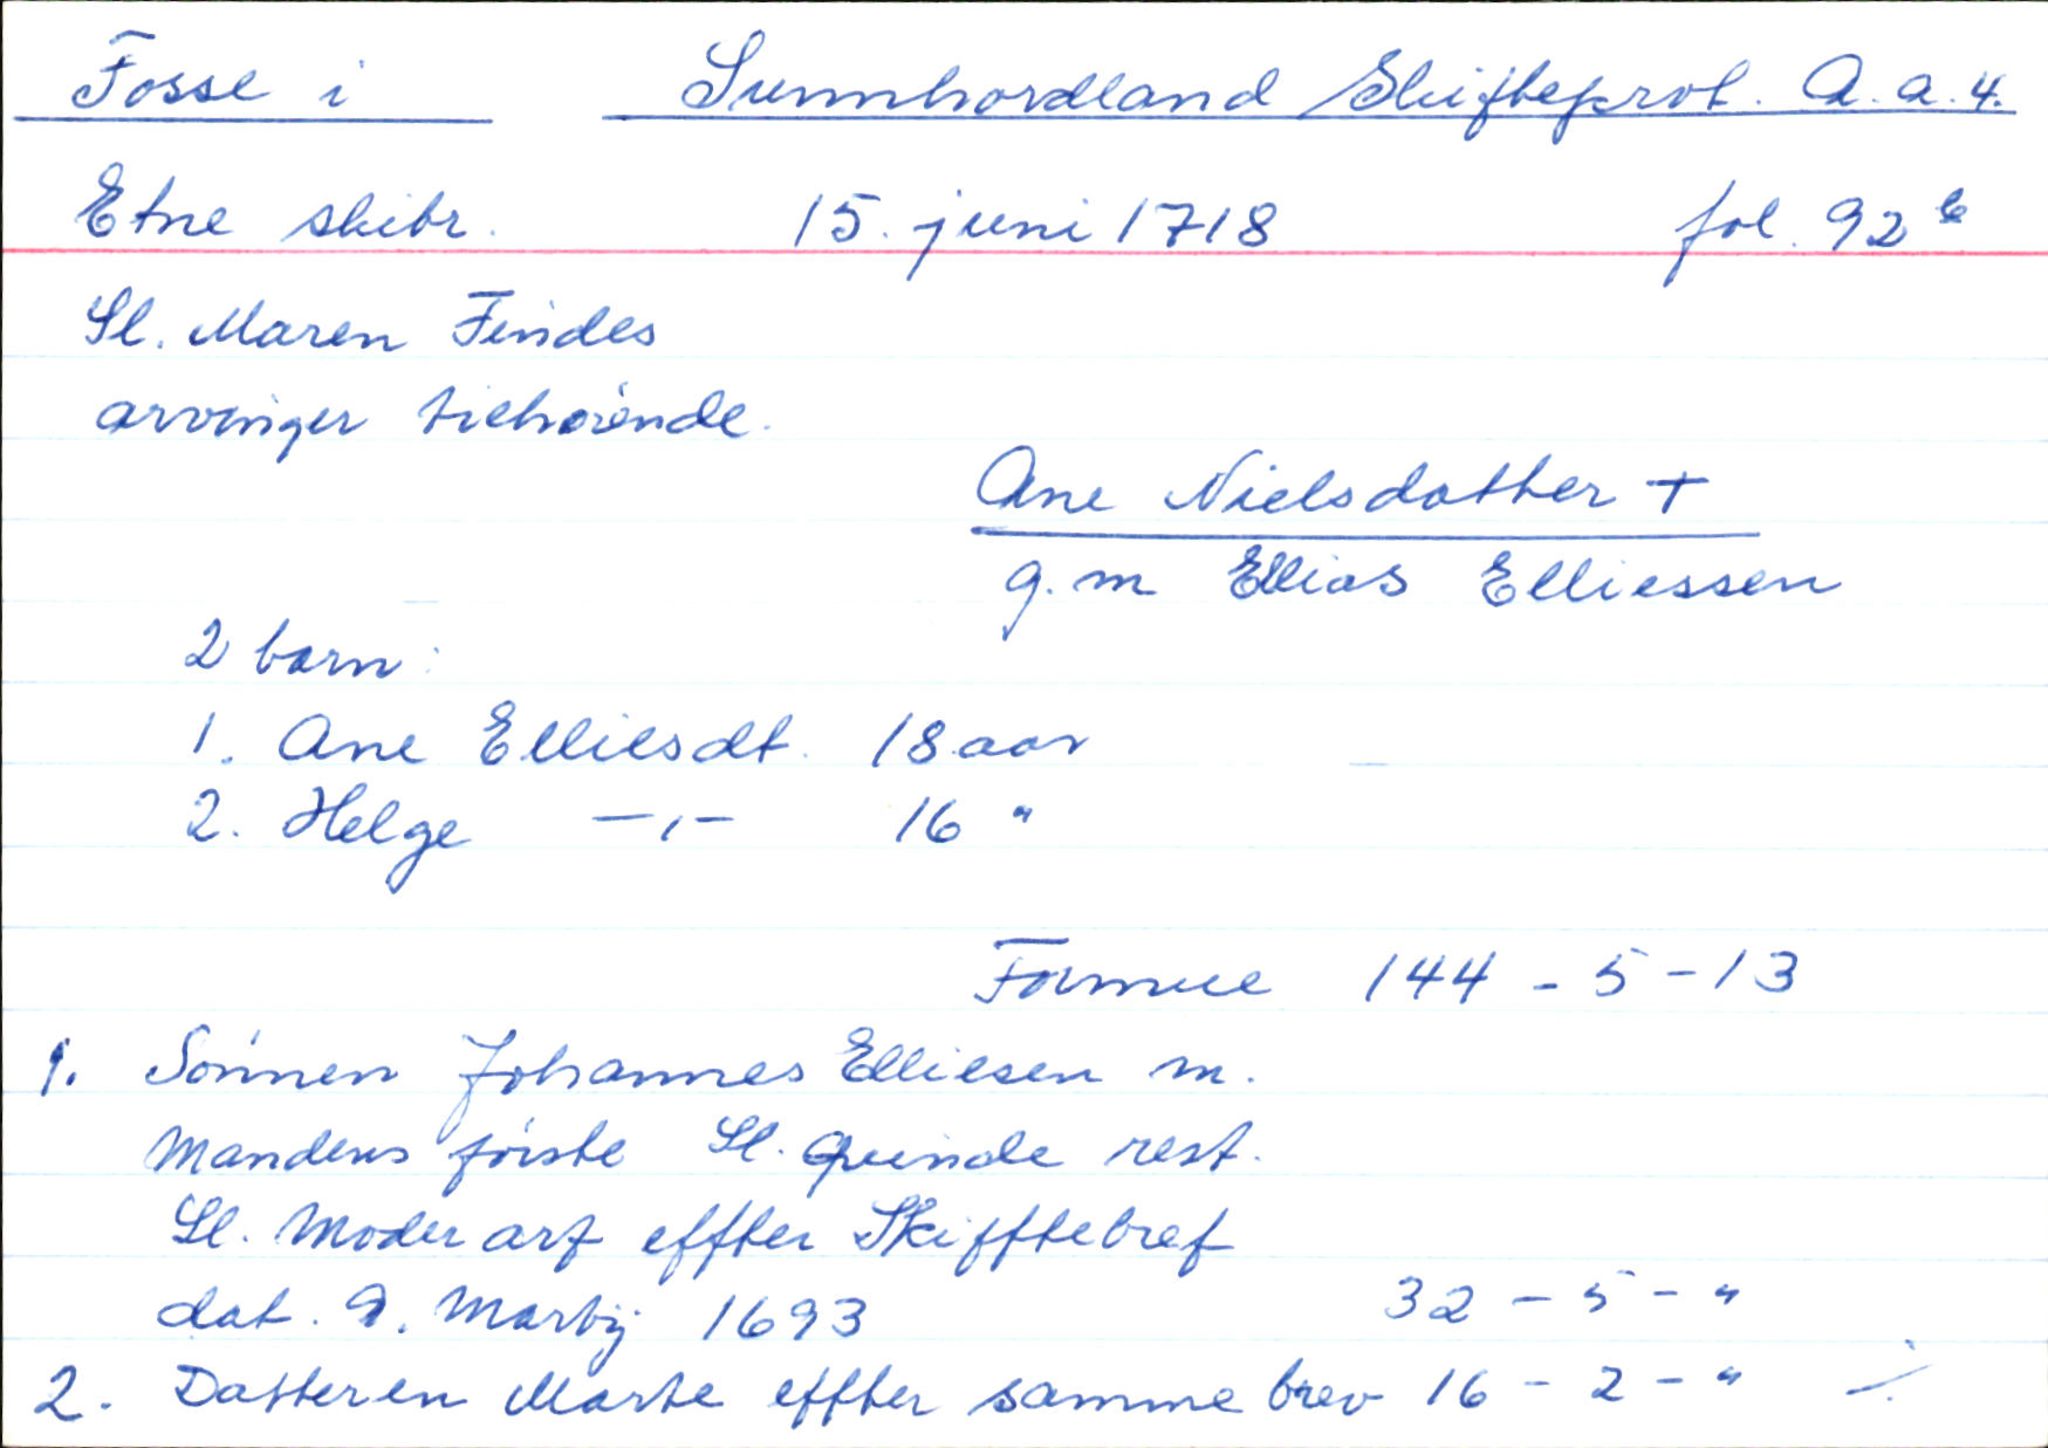 Fosse i Sunnhordland Skifteprot. A.a.4.
Etne skibr. 15. juni 1718 fol. 92 b
Sl. Maren Findes
arvinger tilhørende.
Ane Nielsdatter +
g. m Ellias Elliessen
2 barn:
1. Ane Elliesdt. 18 aar
2. Helge —,— 16 "
Formue 144 - 5 - 13
1. Sønnen Johannes Elliesen m.
Mandens første Sl. Qvinde rest.
Sl. Moder arf effter Skifftebref
dat. 9. Martij 1693 32 - 5 - "
2. Datteren Marte effter samme brev 16 - 2 - " ./.